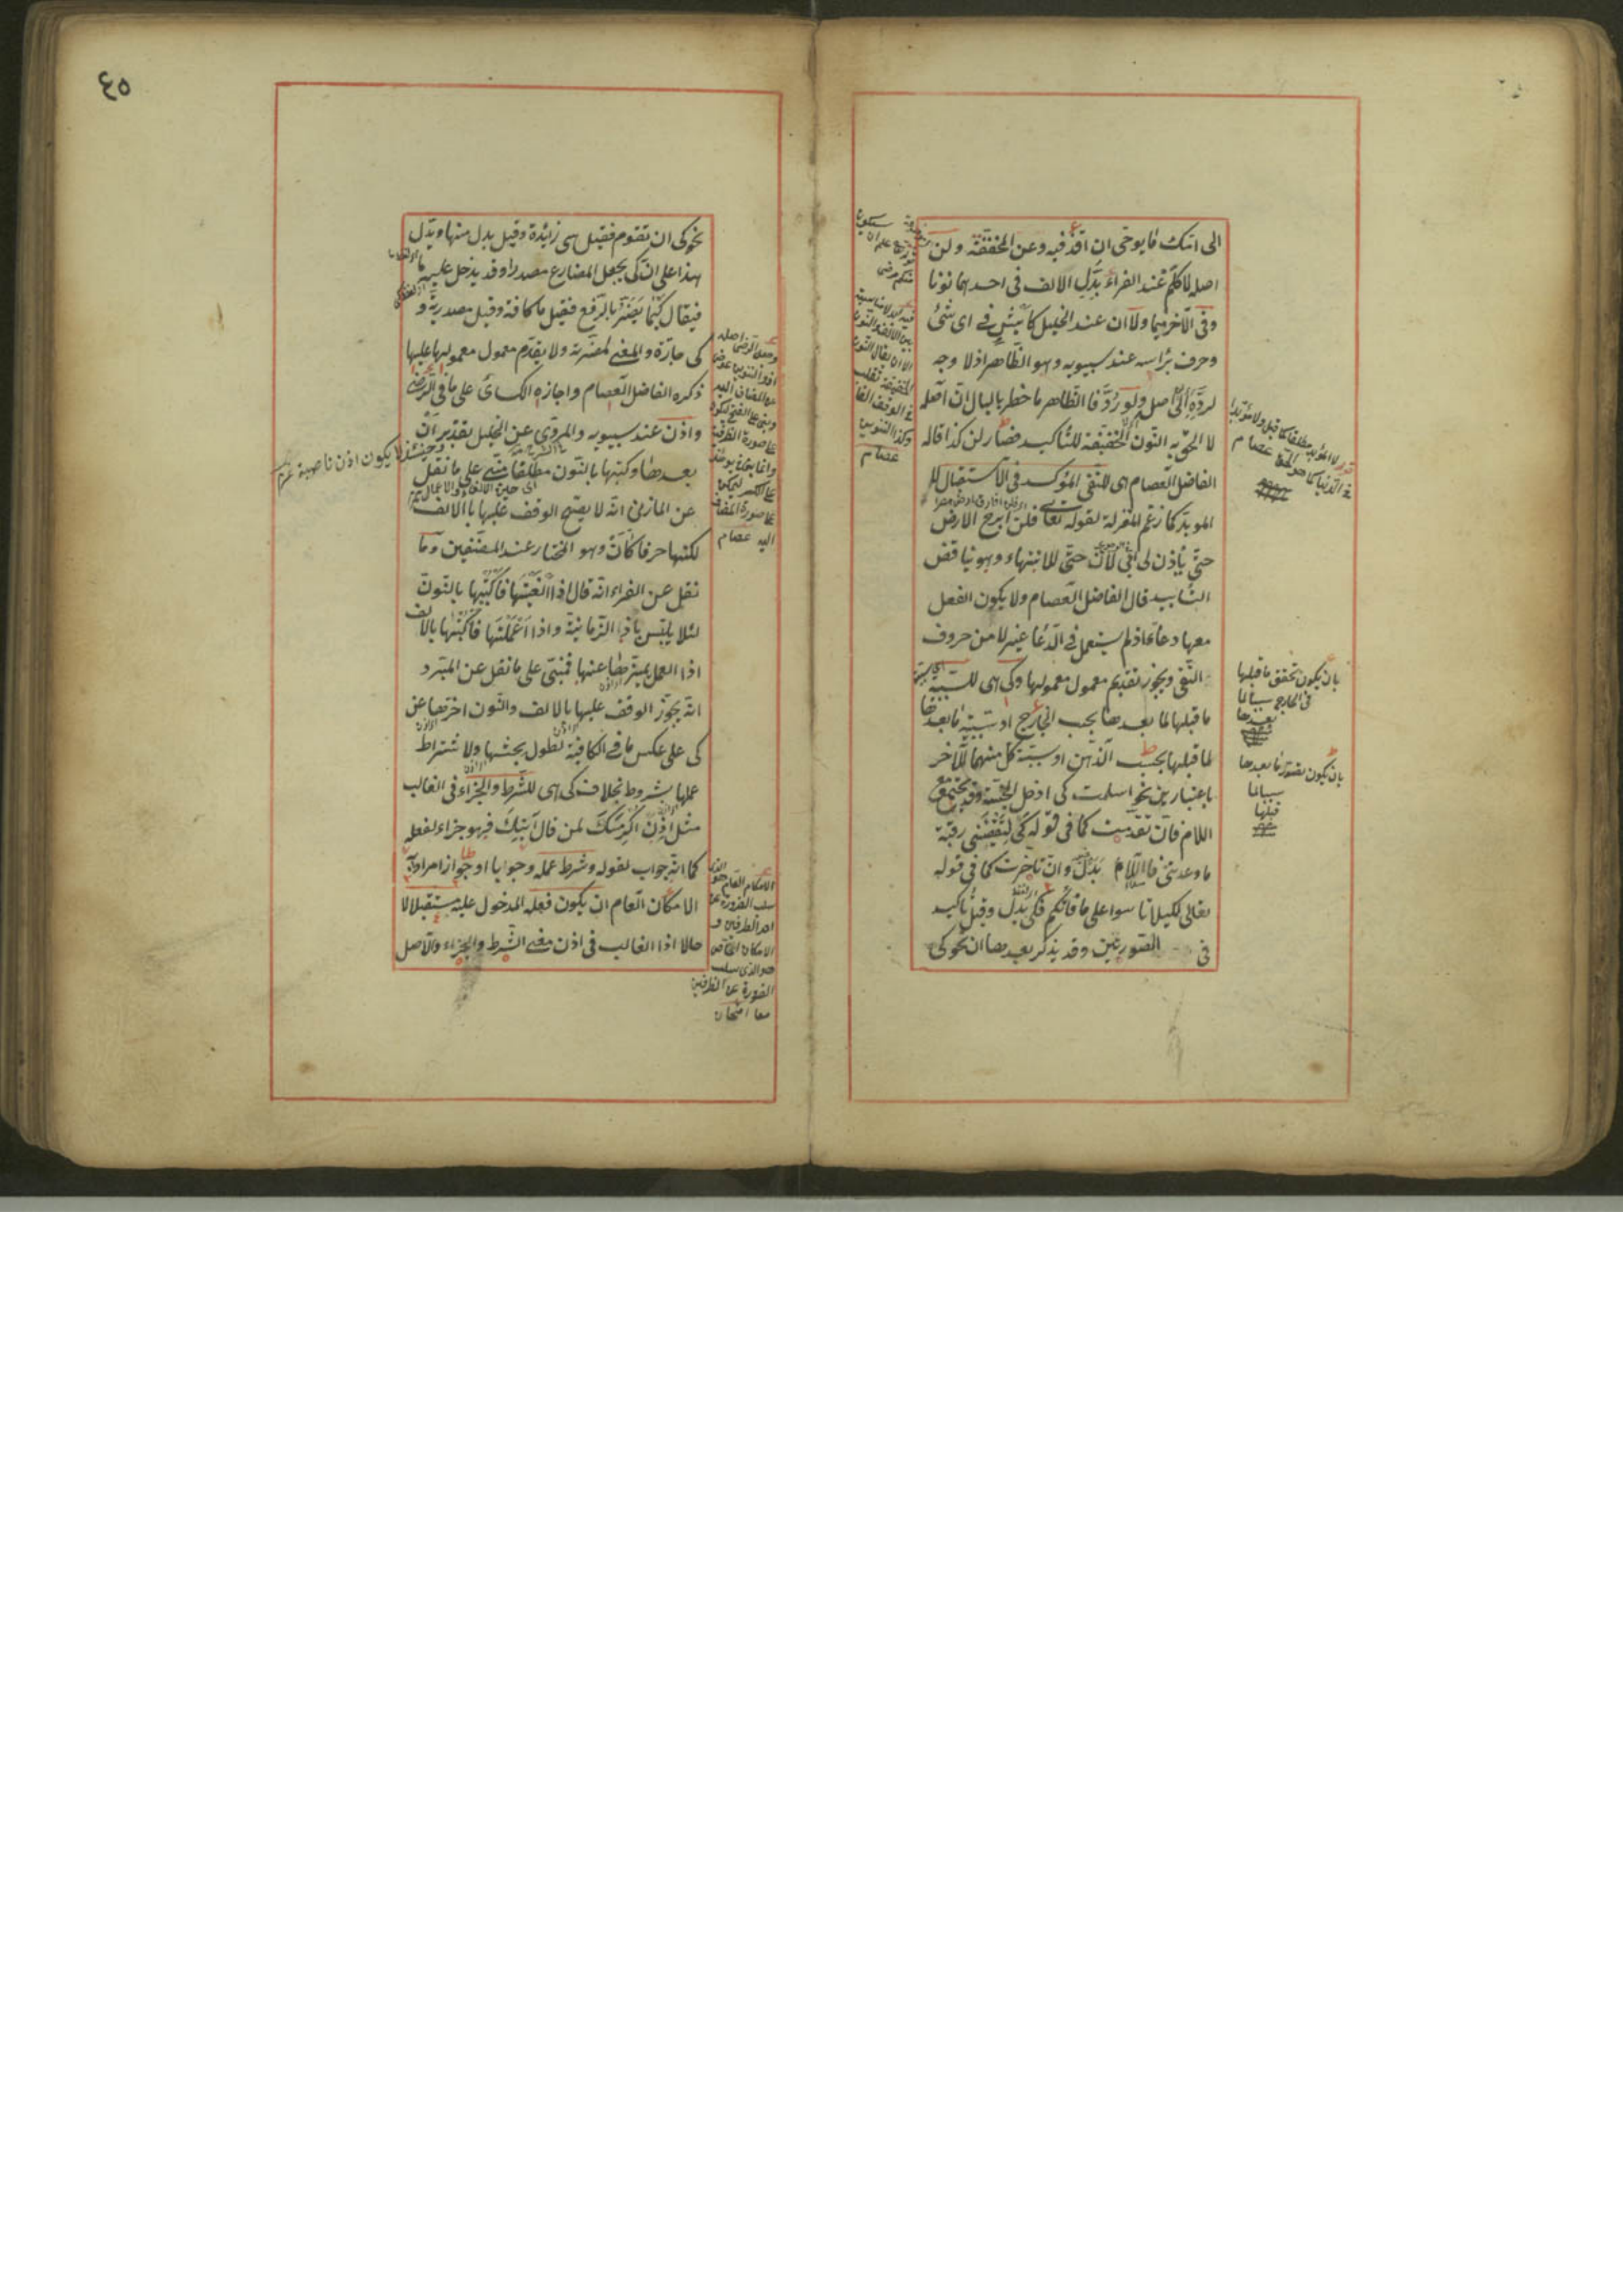 الى امك ما يوحى ان اقذ فيه وعن المخففة ولن
اصله لا كلم عند الفراء بدل الالف في احدهما نونا
وفي الآخر ميما ولا ان عند الخليل كأيش في اى شئ
وحرف برأسه عند سيبويه وهو الظاهر اذ لا وجه
لرده الى اصل ولو رد فالظاهر ما خطر بالبال ان اصله
لا الحق به النون الخفيفة للتأكيد فصار لن كذا قاله
الفاضل العصام اى للنفى المؤكد في الاستقبال لا
المؤبد كما زعم المعتزلة لقوله تعالى فلن ابرح الارض
حتى يأذن لى ابى لان حتى للانتهاء وهو يناقض
التأبيد قال الفاضل العصام ولا يكون الفعل
معها دعاء اذ لم يستعمل في الدعا غير لا من حروف
النفى ويجوز تقديم معمول معمولها وكى اى للسببية
ما قبلها لما بعدها بحسب الخارج او سببية ما بعدها
لما قبلها بحسب الذهن او سببية كل منهما للآخر
باعتبارين نحو اسلمت كى ادخل الجنة وقد يجتمع مع
اللام فان تقدمت كما في قوله كى لتقضينى رقية
ما وعدتنى فاللام بدل وان تأخرت كما في قوله
تعالى لكيلا تأسوا على ما فاتكم فكى بدل وقيل تأكيد
في الصورتين وقد يذكر بعدها ان نحو كى
بان يكون تحقق ما قبلها
في الخارج سببا لما
بعدها
بان يكون تصور ما بعدها
سببا لما
قبلها
٤٥
نحو كى ان تقوم فقيل هى زائدة وقيل بدل منها ويدل
هذا على ان كى يجعل المضارع مصدرا وقد يدخل عليه ما
فيقال كيما يضر بالرفع فقيل ما كافة وقيل مصدرية و
كى جارة والمعنى لمضرته ولا يقدم معمول معمولها عليها
ذكره الفاضل العصام واجازه الكسائى على ما في الرضى
واذن عند سيبويه والمروى عن الخليل بتقدير ان
بعدها وكتبها بالنون مطلقا مبنى على ما نقل
عن المازنى انه لا يصح الوقف عليها بالالف
لكنها حرفا كأن وهو المختار عند المصنفين وما
نقل عن الفراء انه قال اذا الغيتها فاكتبها بالنون
لئلا يلتبس باذا الزمانية واذا اعملتها فاكتبها بالالف
اذا العمل يميزها عنها فمبنى على ما نقل عن المبرد
انه يجوز الوقف عليها بالالف والنون اخرها عن
كى على عكس ما في الكافية لطول بحثها ولاشتراط
عملها بشروط بخلاف كى اى للشرط والجزاء في الغالب
مثل اذن اكرمك لمن قال آتيك فهو جزاء لفعله
كما انه جواب لقوله وشرط عمله وجوبا او جوازا مرادا به
الامكان العام ان يكون فعله المدخول عليه مستقبلا لا
حالا اذا الغالب في اذن معنى الشرط والجزاء والاصل
وحينئذ لا يكون اذن ناصبة
الامكان العام هو الذى
سلب الضرورة عن
احد الطرفين و
الامكان الخاص
هو الذى سلب
الضرورة عن الطرفين
معا امتحان